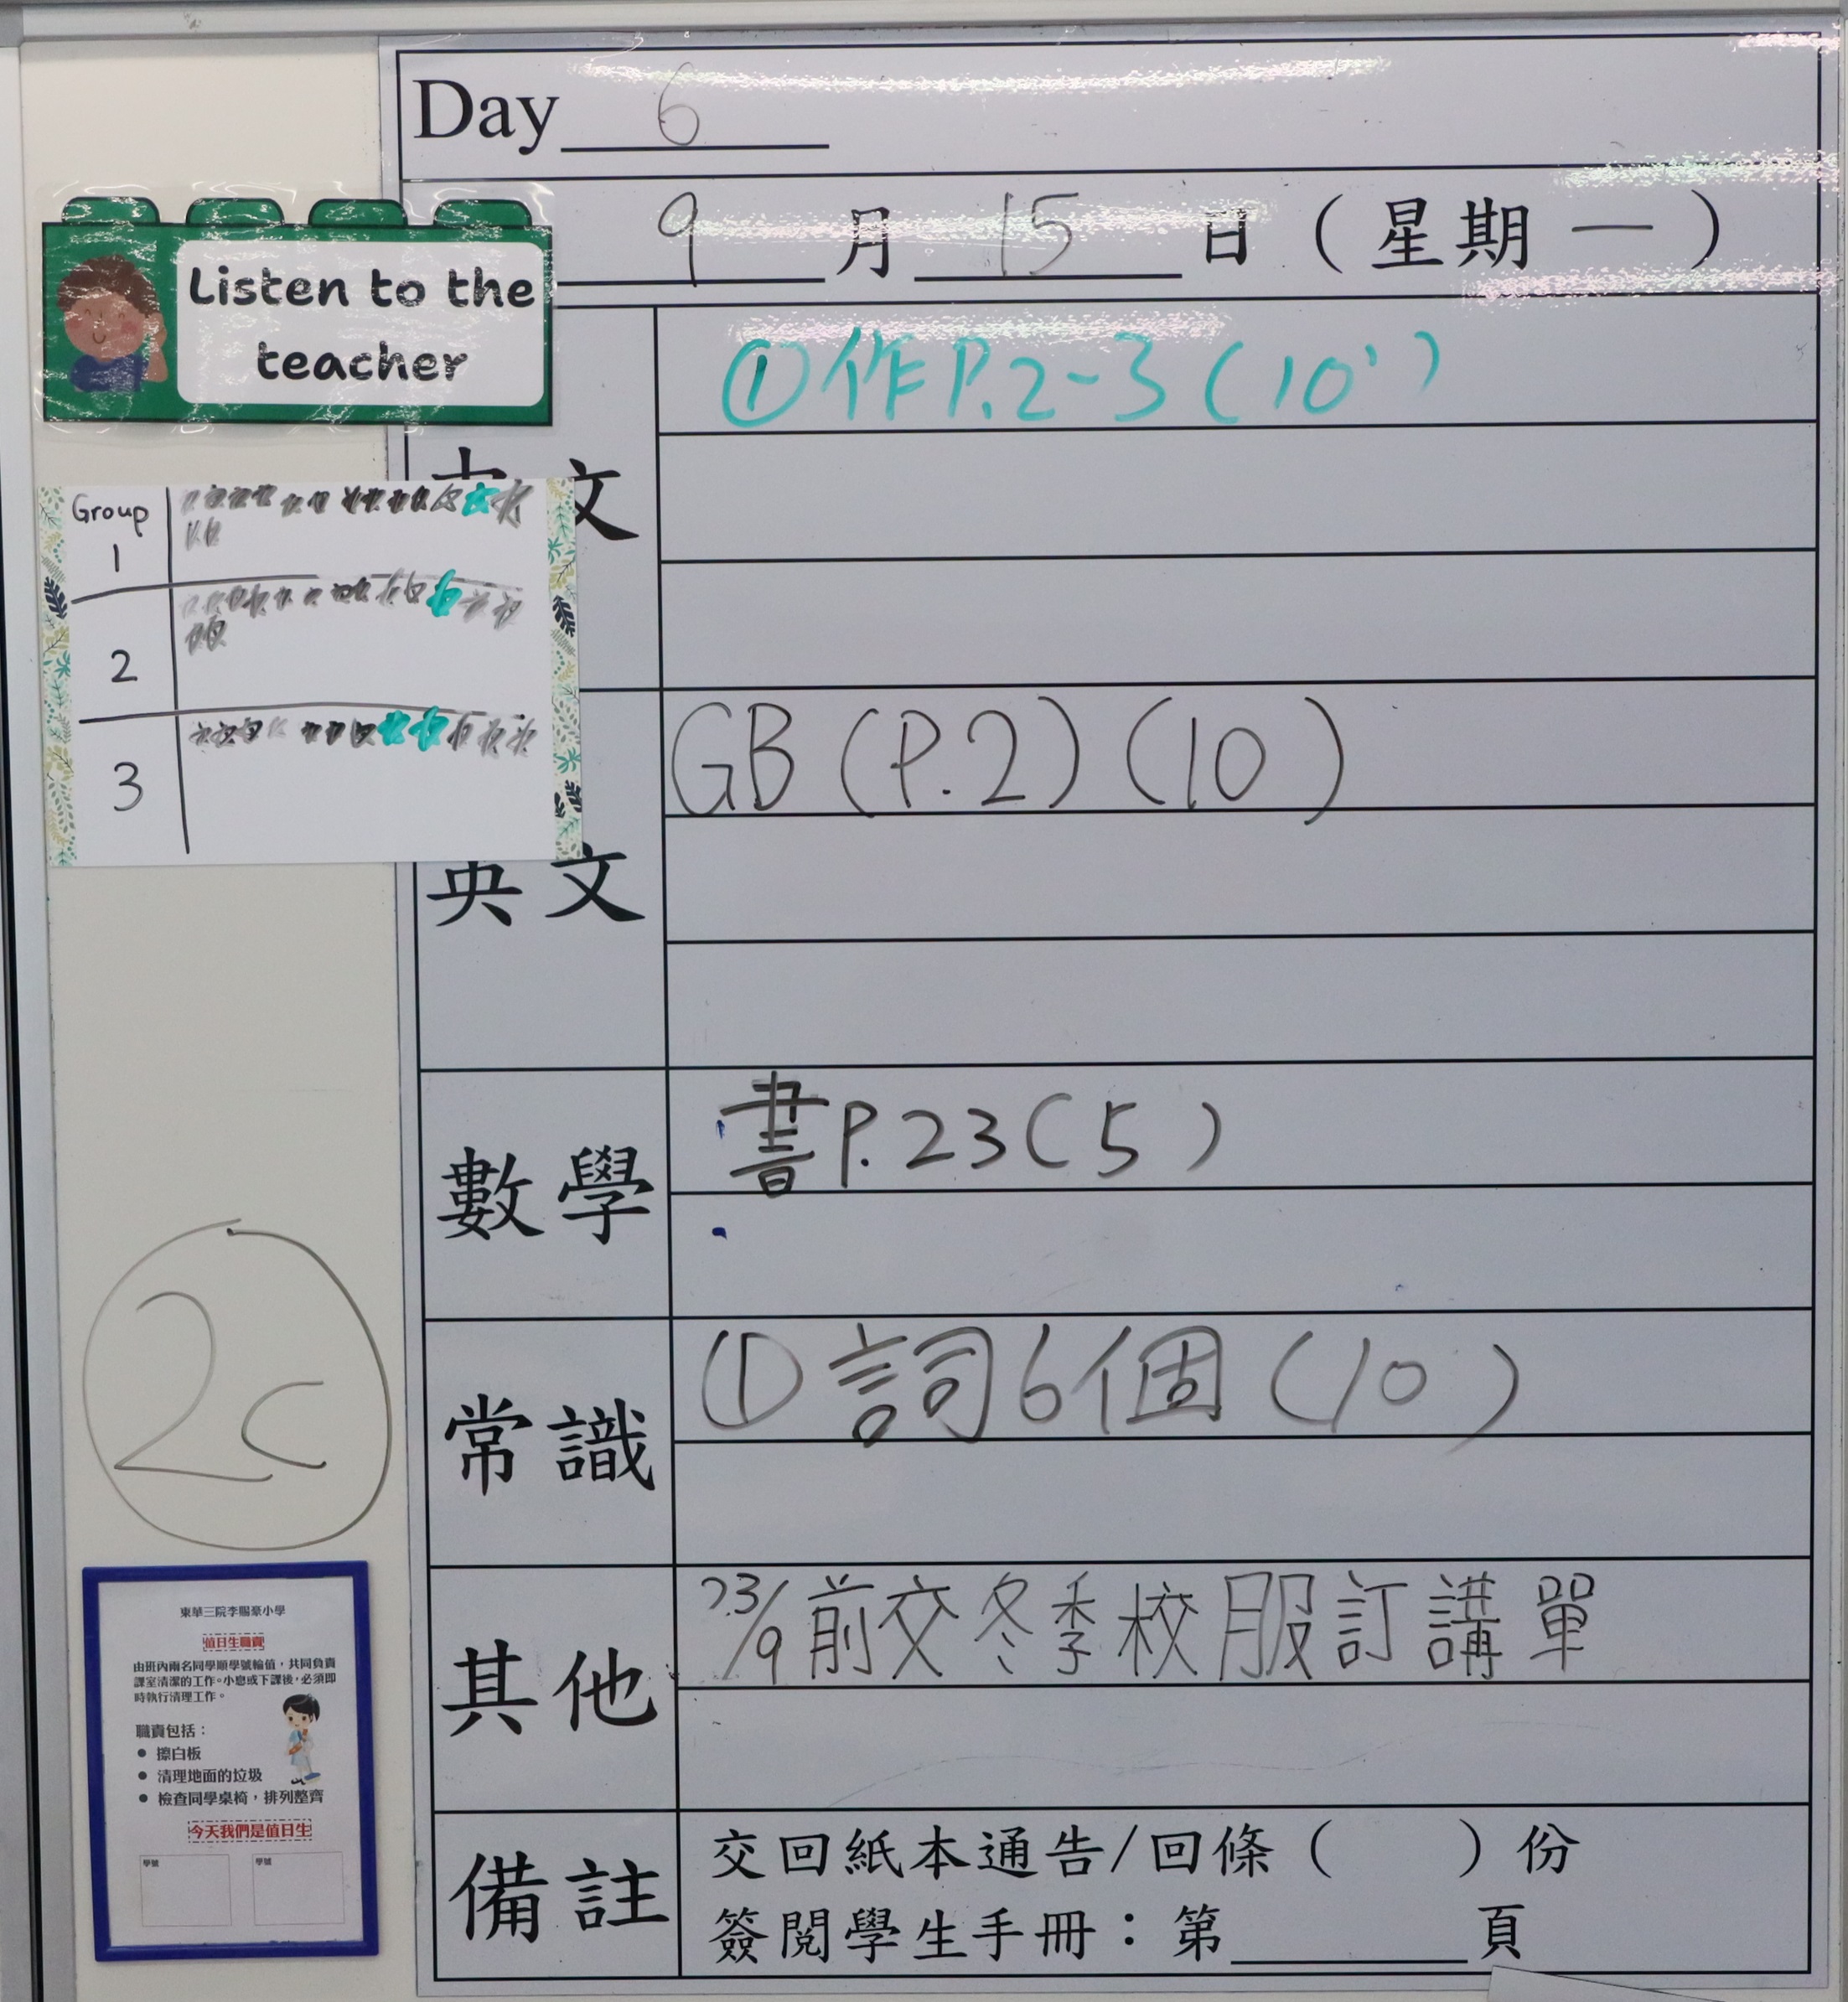 Day 6
9 月 15 日 ( 星期 一 )
Listen to the
teacher
① 作 P.2-3 ( 10' )
文
Group
1
2
3
GB (P.2) (10 )
英文
數學
書 P.23 ( 5 )
2C
常識
① 詞6個 ( 10 )
其他
23/9 前交冬季校服訂講單
備註
交回紙本通告/回條 ( ) 份
簽閱學生手冊：第______頁
東華三院李賜豪小學
值日生職責
由班內兩名同學順學號輪值，共同負責
課室清潔的工作。小息或下課後，必須即
時執行清理工作。
職責包括：
● 擦白板
● 清理地面的垃圾
● 檢查同學桌椅，排列整齊
今天我們是值日生
學號
學號